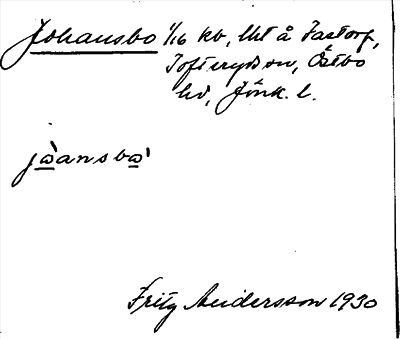 Johansbo 1/16 kb, lht å Fastorp,
Tofteryds sn, Östbo
hd, Jönk. l.
jòansbo'
Fritz Andersson 1930